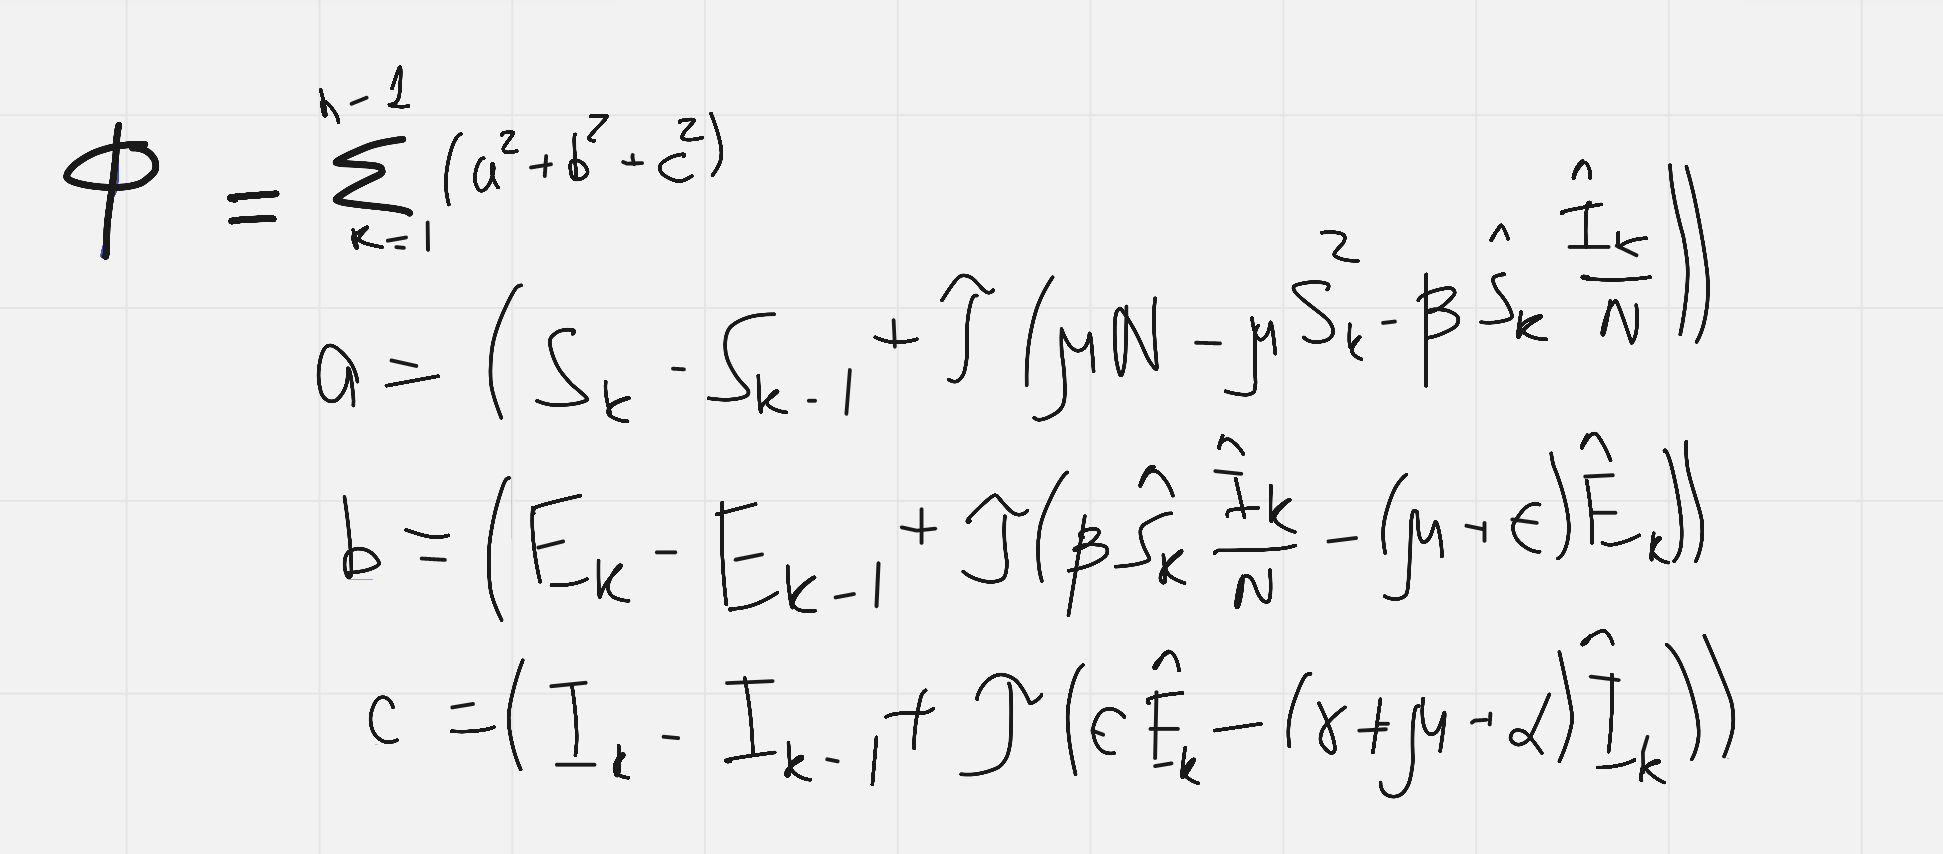 ϕ = ∑_{k=1}^{n-1} (a² + b² + c²)
a = (S_k - S_{k-1} + τ(μN - μS_k² - βŜ_k Î_k/N))
b = (E_k - E_{k-1} + τ(βŜ_k Î_k/N - (μ + ϵ)Ê_k))
c = (I_k - I_{k-1} + τ(ϵÊ_k - (γ + μ + α)Î_k))